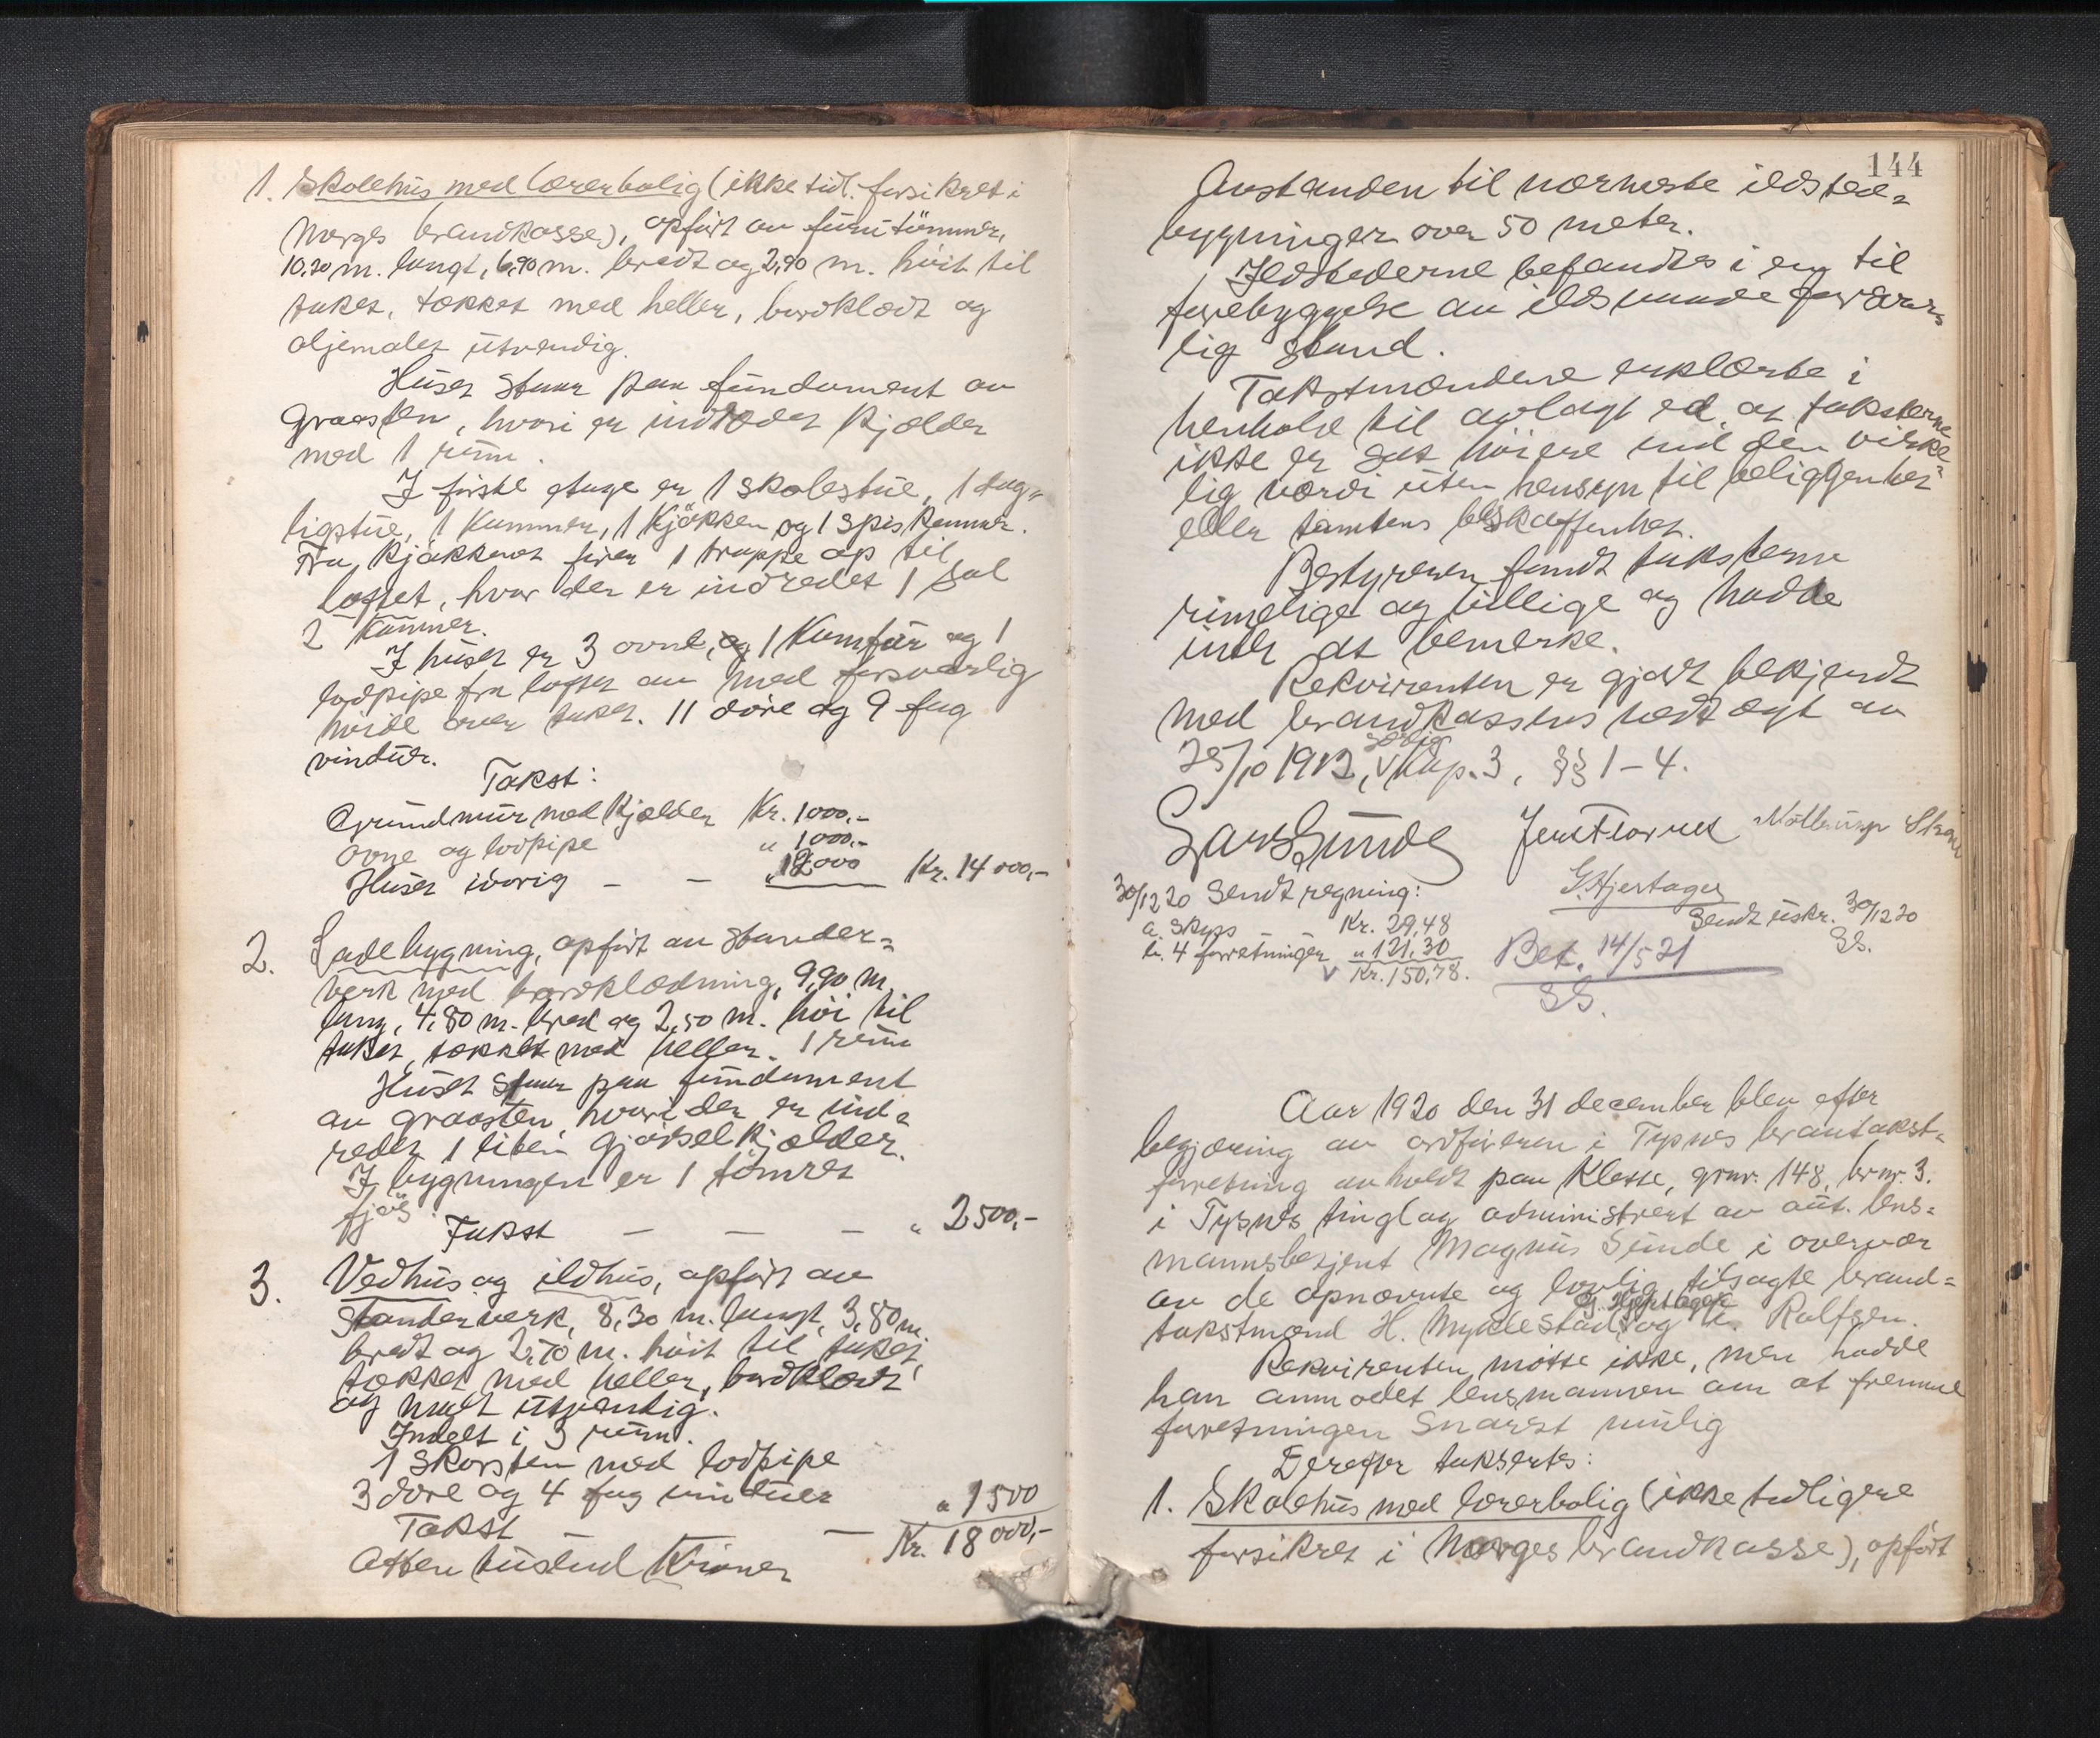 1. Skolehus med lærerbolig (ikke tidl. forsikret i
Norges brandkasse), opført av furutømmer,
10,20 m. langt, 6,90 m. bredt og 2,90 m. høit til
taket, tækket med heller, bordklædt og
oljemalet utvendig.
Huset staar paa fundament av
graasten, hvori er indredet kjelder
med 1 rum.
I første etage er 1 skolestue, 1 dag-
ligstue, 1 kammer, 1 kjøkken og 1 spiskammer.
Fra kjøkkenet fører 1 trappe op til
loftet, hvor der er indredet 1 sal
2 kammer.
I huset er 3 ovne, og 1 komfur og 1
lodpipe fra loftet av med forsvarlig
høide over taket. 11 døre og 9 fag
vinduer.
Takst:
Grundmur med kjelder Kr. 1000,-
Ovne og lodpipe " 1000,-
Huset iøvrig - - " 12000 Kr. 14000,-
2. Ladebygning, opført av stander-
verk med bordklædning, 9,90 m.
lang, 4,80 m. bred og 2,50 m. høi til
taket, tækket med heller. 1 rum
Huset staar paa fundament
av graasten, hvori der er ind-
redet 1 liten gjødselkjelder.
I bygningen er 1 tømret
fjøs.
Takst - - - " 2500,-
3. Vedhus og ildhus, opført av
standerverk, 8,30 m. langt, 3,80 m.
bredt og 2,70 m. høit til taket,
tækket med heller, bordklædt
og malt utvendig.
Indelt i 3 rum.
1 skorsten med lodpipe
3 døre og 4 fag vinduer
Takst - - " 1500
Kr. 18000,-
Atten tusend Kroner
144
Avstanden til nærmeste ildsteds-
bygninger over 50 meter.
Ildstederne befandtes i en til
forebyggelse av ildsvaade forsvar-
lig stand.
Takstmændene erklærte i
henhold til avlagt ed, at taksterne
ikke er sat høiere end den virke-
lig værdi uten hensyn til beliggenhet
eller tomtens beskaffenhet.
Bestyreren fandt taksterne
rimelige og billige og hadde
intet at bemerke.
Rekvirenten er gjort bekjendt
med brandkassens vedtægt av
25/10 1912, særlig kap. 3, §§ 1-4.
Lars Sunde
G. Hjertager
30/12 20 Sendt regning:
a. skyss - Kr. 29,48
b. 4 forretninger " 121,30
Kr. 150,78.
Sendt utskr. 30/12 20
Bet. 14/5 21
Aar 1920 den 31 december blev efter
begjæring av ordføreren i Tysnes brandtakst-
forretning avholdt paa Kleppe, grnr. 148, brnr. 3.
i Tysnes tinglag administrert av aut. lens-
mannsbetjent Magnus Sunde i overvær
av de opnævnte og lovlig tilsagte brand-
G. Hjertager
takstmænd H. Myklestad, og Rolfsen.
Rekvirenten møtte ikke, men hadde
han anmodet lensmannen om at fremme
forretningen snarest mulig
Derefter taksertes:
1. Skolehus med lærerbolig (ikke tidligere
forsikret i Norges brandkasse), opført